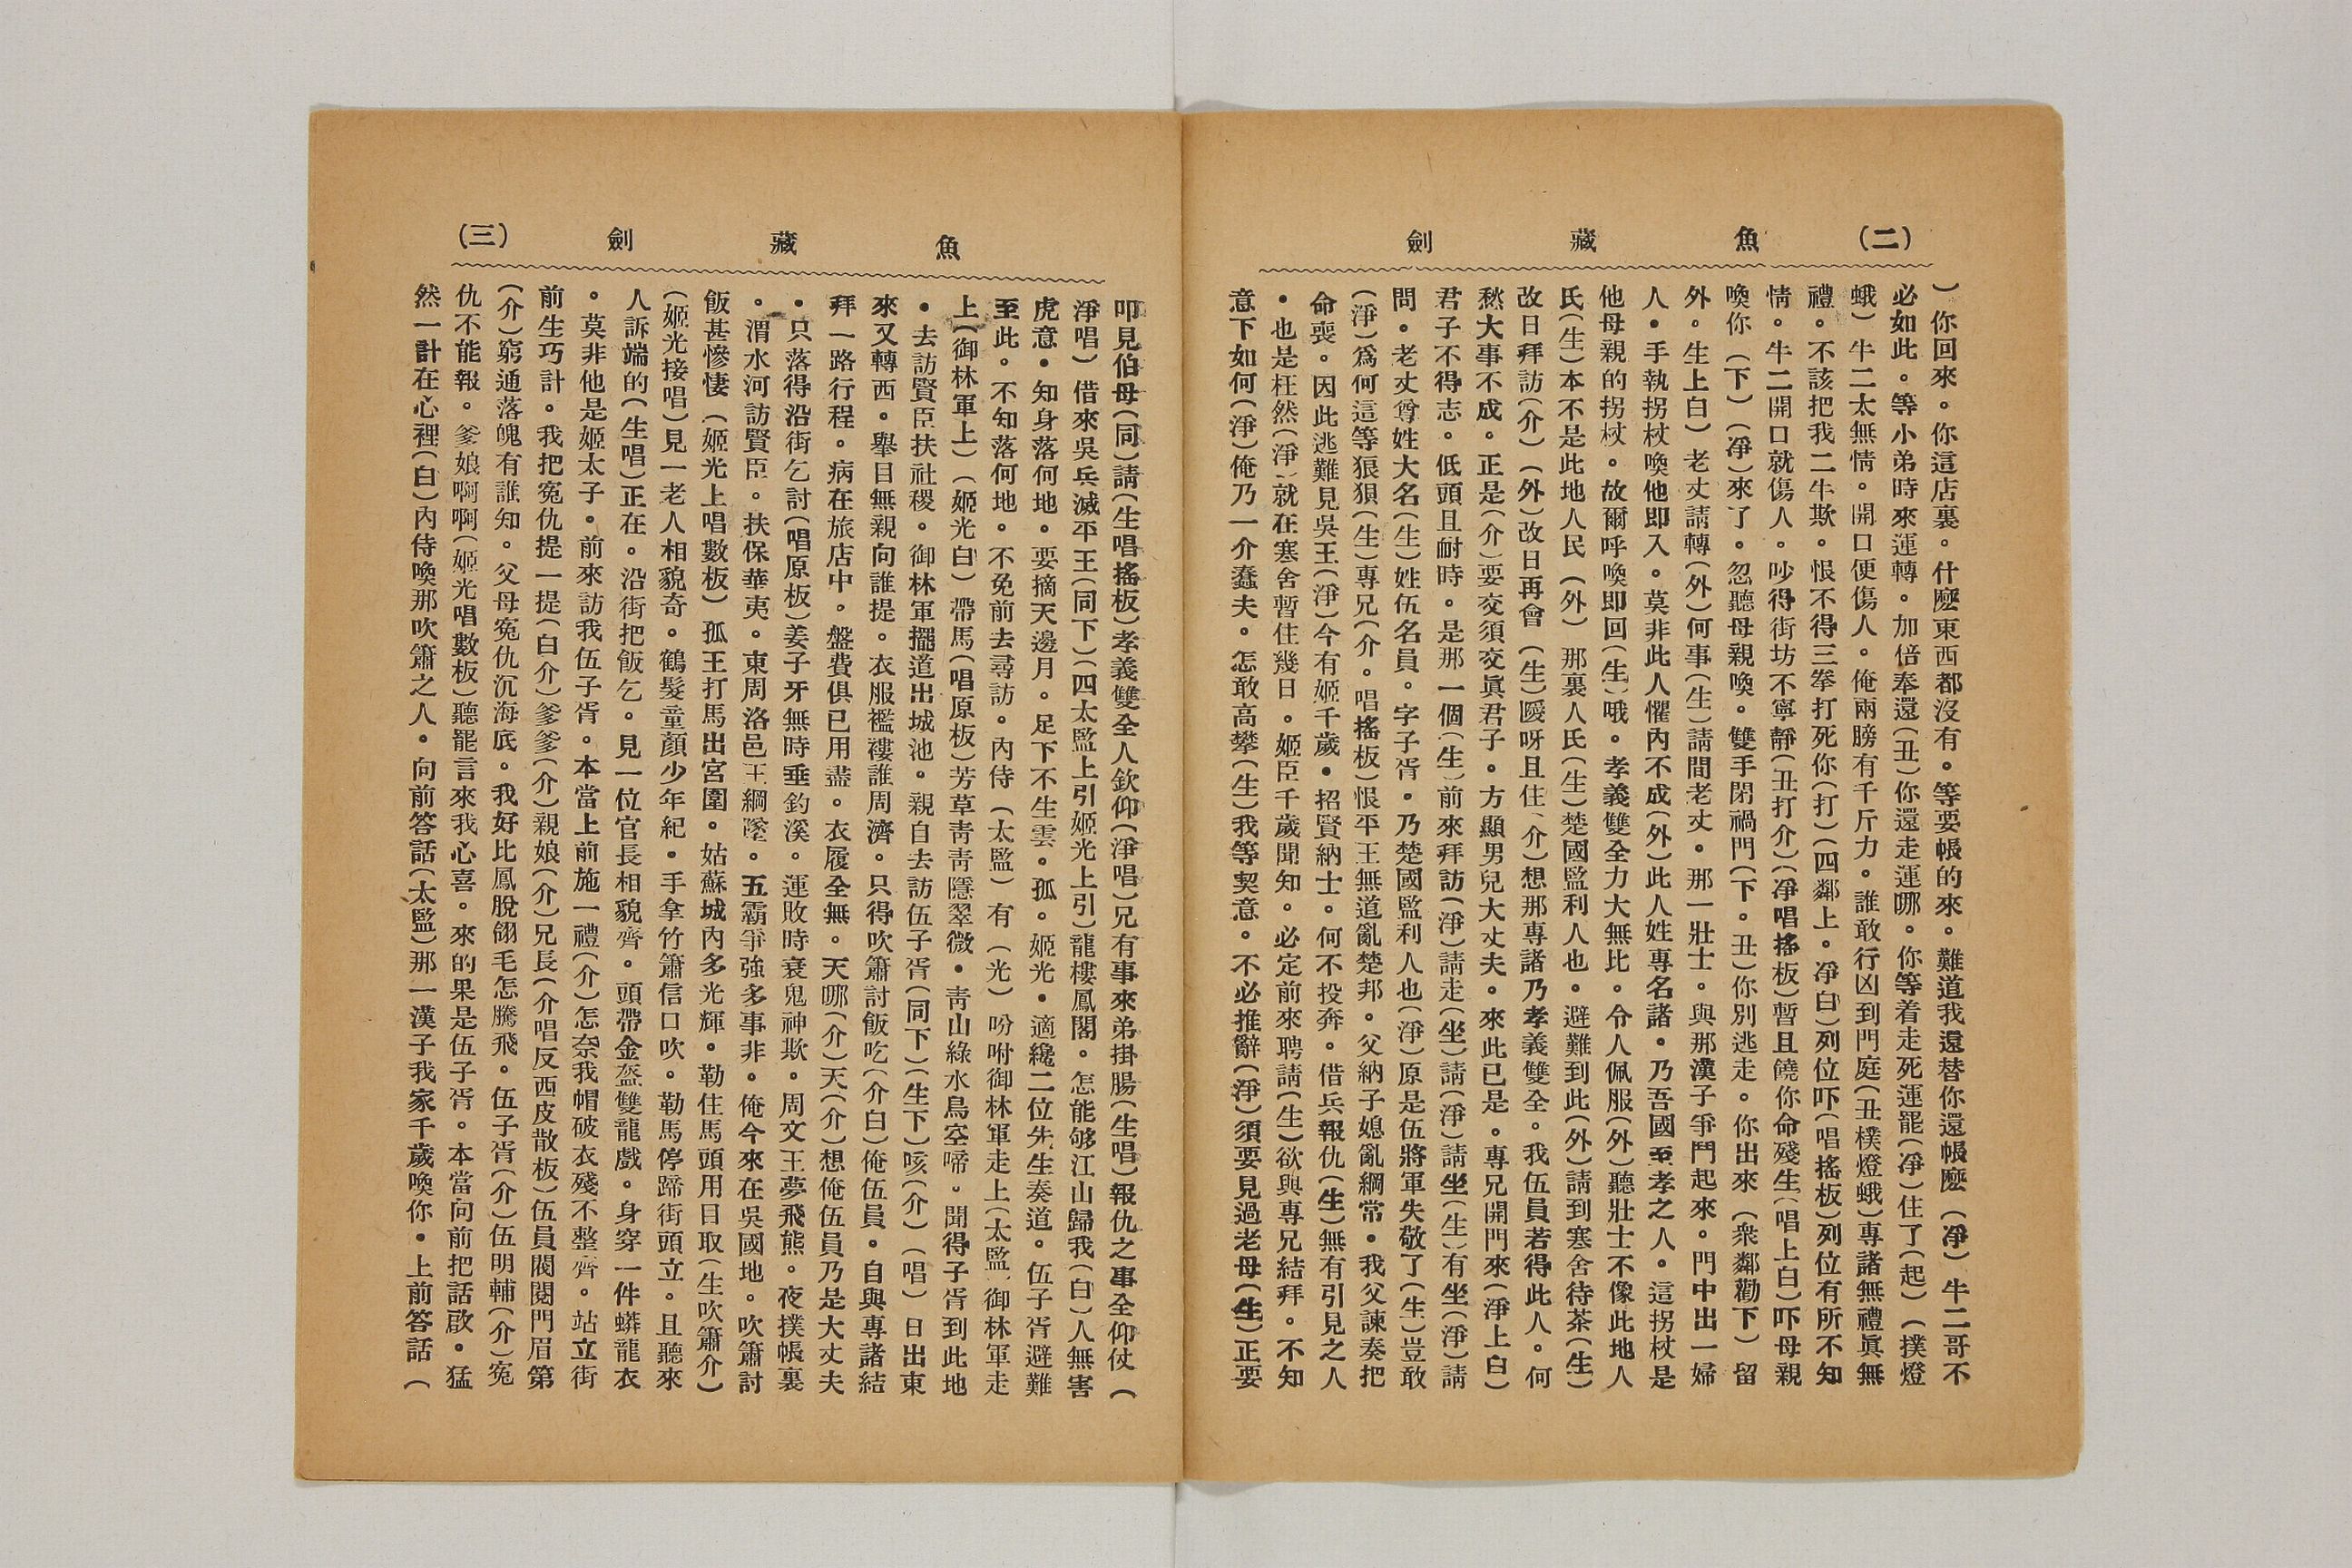 (二) 魚藏劍
）你回來。你這店裏。什麼東西都沒有。等要帳的來。難道我還替你還帳麼（凈）牛二哥不
必如此。等小弟時來運轉。加倍奉還（丑）你還走運哪。你等着走死運罷（凈）住了（起）（撲燈
蛾）牛二太無情。開口便傷人。俺兩膀有千斤力。誰敢行凶到門庭（丑樸燈蛾）專諸無禮眞無
禮。不該把我二牛欺。恨不得三拳打死你（打）（四鄰上。凈白）列位吓（唱搖板）列位有所不知
情。牛二開口就傷人。吵得街坊不寧靜（丑打介）（凈唱搖板）暫且饒你命殘生（唱上白）吓母親
喚你（下）（凈）來了。忽聽母親喚。雙手閉禍門（下。丑）你別逃走。你出來（衆鄰勸下）留
外。生上白）老丈請轉（外）何事（生）請問老丈。那一壯士。與那漢子爭鬥起來。門中出一婦
人。手執拐杖喚他即入。莫非此人懼內不成（外）此人姓專名諸。乃吾國至孝之人。這拐杖是
他母親的拐杖。故爾呼喚即回（生）哦。孝義雙全力大無比。令人佩服（外）聽壯士不像此地人
氏（生）本不是此地人民（外）那裏人氏（生）楚國監利人也。避難到此（外）請到寒舍待茶（生）
改日拜訪（介）（外）改日再會（生）噯呀且住（介）想那專諸乃孝義雙全。我伍員若得此人。何
愁大事不成。正是（介）要交須交眞君子。方顯男兒大丈夫。來此已是。專兄開門來（淨上白）
君子不得志。低頭且耐時。是那一個（生）前來拜訪（淨）請走（坐）請（淨）請坐（生）有坐（淨）請
問。老丈尊姓大名（生）姓伍名員。字子胥。乃楚國監利人也（淨）原是伍將軍失敬了（生）豈敢
（淨）爲何這等狼狽（生）專兄（介。唱搖板）恨平王無道亂楚邦。父納子媳亂綱常。我父諫奏把
命喪。因此逃難見吳王（淨）今有姬千歲。招賢納士。何不投奔。借兵報仇（生）無有引見之人
。也是枉然（淨）就在寒舍暫住幾日。姬臣千歲聞知。必定前來聘請（生）欲與專兄結拜。不知
意下如何（淨）俺乃一介蠢夫。怎敢高攀（生）我等契意。不必推辭（淨）須要見過老母（生）正要
(三) 魚藏劍
叩見伯母（同）請（生唱搖板）孝義雙全人欽仰（淨唱）兄有事來弟掛腸（生唱）報仇之事全仰仗（
淨唱）借來吳兵滅平王（同下）（四太監上引姬光上引）龍樓鳳閣。怎能够江山歸我（白）人無害
虎意。知身落何地。要摘天邊月。足下不生雲。孤。姬光。適纔二位先生奏道。伍子胥避難
至此。不知落何地。不免前去尋訪。內侍（太監）有（光）吩咐御林軍走上（太監）御林軍走
上（御林軍上）（姬光白）帶馬（唱原板）芳草青青隱翠微。青山綠水鳥空啼。聞得子胥到此地
。去訪賢臣扶社稷。御林軍擺道出城池。親自去訪伍子胥（同下）（生下）咳（介）（唱）日出東
來又轉西。舉目無親向誰提。衣服襤褸誰周濟。只得吹簫討飯吃（介白）俺伍員。自與專諸結
拜一路行程。病在旅店中。盤費俱已用盡。衣履全無。天哪（介）天（介）想俺伍員乃是大丈夫
。只落得沿街乞討（唱原板）姜子牙無時垂釣溪。運敗時衰鬼神欺。周文王夢飛熊。夜撲帳裏
。渭水河訪賢臣。扶保華夷。東周洛邑王綱墜。五霸爭強多事非。俺今來在吳國地。吹簫討
飯甚慘悽（姬光上唱數板）孤王打馬出宮圍。姑蘇城內多光輝。勒住馬頭用目取（生吹簫介）
（姬光接唱）見一老人相貌奇。鶴髮童顏少年紀。手拿竹簫信口吹。勒馬停蹄街頭立。且聽來
人訴端的（生唱）正在。沿街把飯乞。見一位官長相貌齊。頭帶金盔雙龍戲。身穿一件蟒龍衣
。莫非他是姬太子。前來訪我伍子胥。本當上前施一禮（介）怎奈我帽破衣殘不整齊。站立街
前生巧計。我把寃仇提一提（白介）爹爹（介）親娘（介）兄長（介唱反西皮散板）伍員閥閱門眉第
（介）窮通落魄有誰知。父母寃仇沉海底。我好比鳳脫翎毛怎騰飛。伍子胥（介）伍明輔（介）寃
仇不能報。爹娘啊啊（姬光唱數板）聽罷言來我心喜。來的果是伍子胥。本當向前把話啟。猛
然一計在心裡（白）內侍喚那吹簫之人。向前答話（太監）那一漢子我家千歲喚你。上前答話（